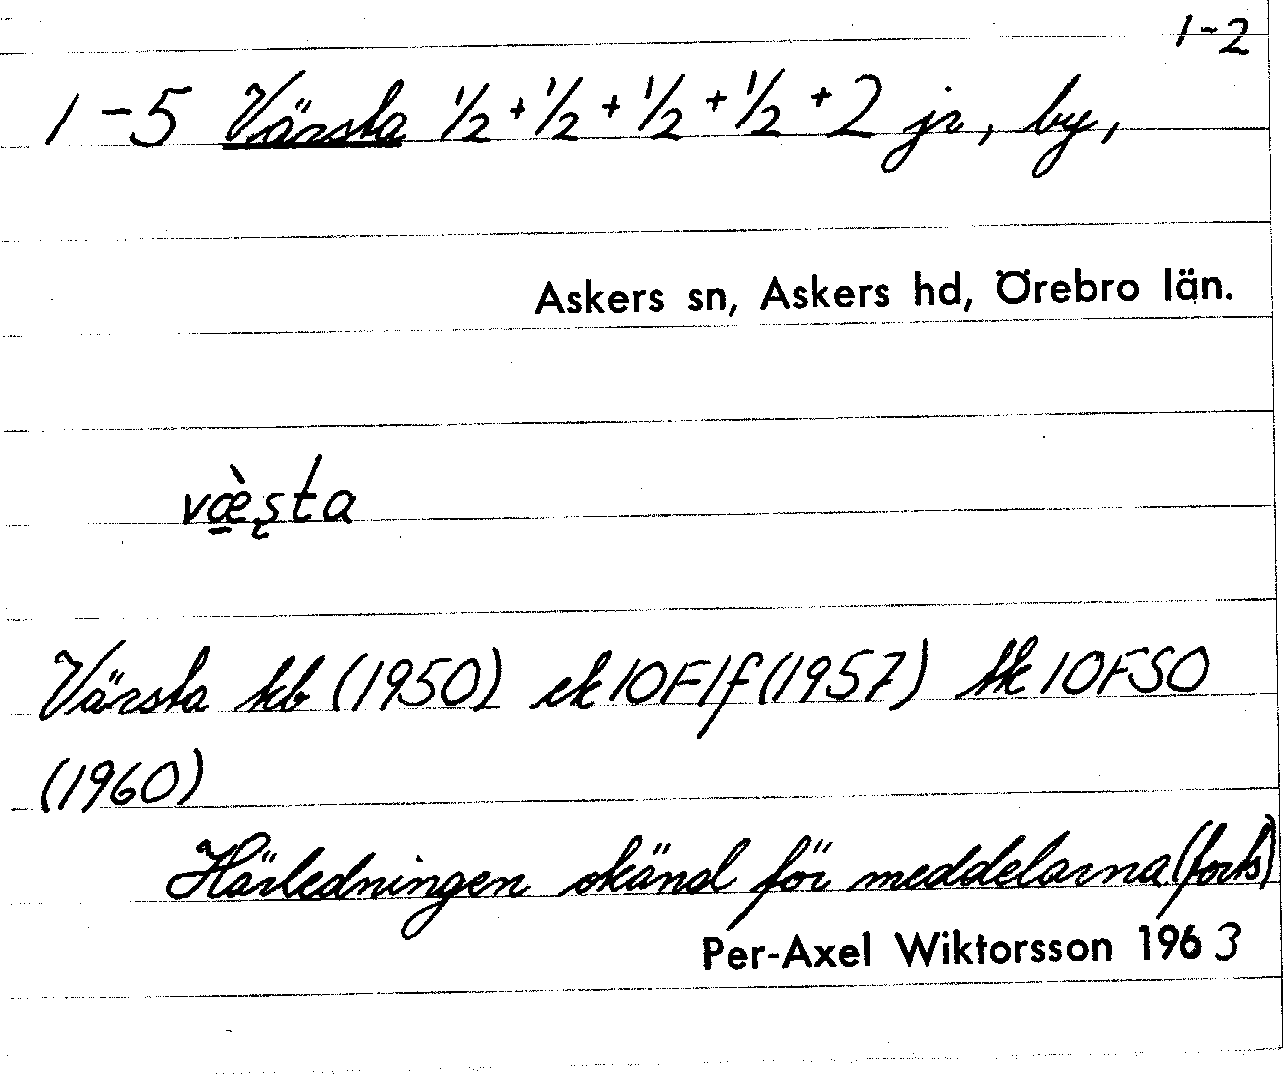 1-2
1-5 Värsta 1/2 + 1/2 + 1/2 + 1/2 + 2 jr, by,
Askers sn, Askers hd, Örebro län.
væ̀ṣta
Värsta kb (1950) ek 10F1f (1957) tk 10F SO
(1960)
Härledningen okänd för meddelarna (forts)
Per-Axel Wiktorsson 1963